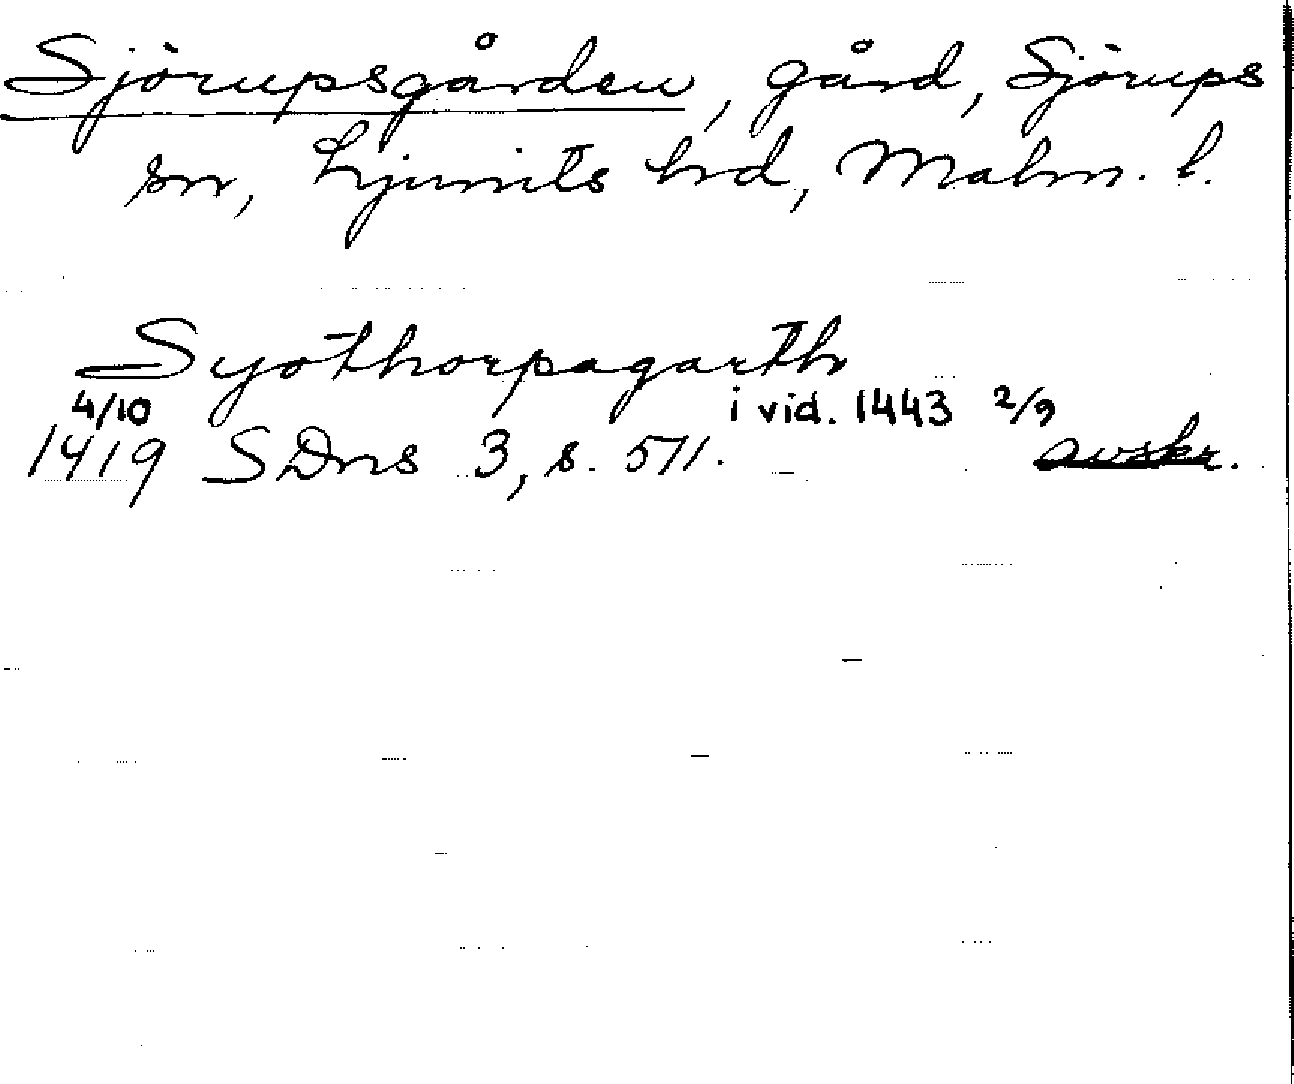 Sjörupsgården, gård, Sjörups
sn, Ljunits hrd, Malm. l.
Syothorpagarth
4/10 i vid. 1443 2/9
1419 SDns 3, s. 571. avskr.